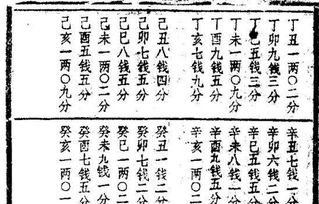 丁丑一两〇二分
丁卯九钱三分
丁巳五钱三分
丁未一两〇二分
丁酉九钱五分
丁亥七钱九分
己丑八钱四分
己卯七钱五分
己巳八钱五分
己未一两〇二分
己酉五钱五分
己亥一两〇九分
辛丑七钱一分
辛卯六钱二分
辛巳五钱五分
辛未八钱一分
辛酉九钱五分
辛亥一两〇
癸丑一钱二分
癸卯七钱二分
癸巳一两〇二
癸未九钱一分
癸酉七钱五分
癸亥一两〇一